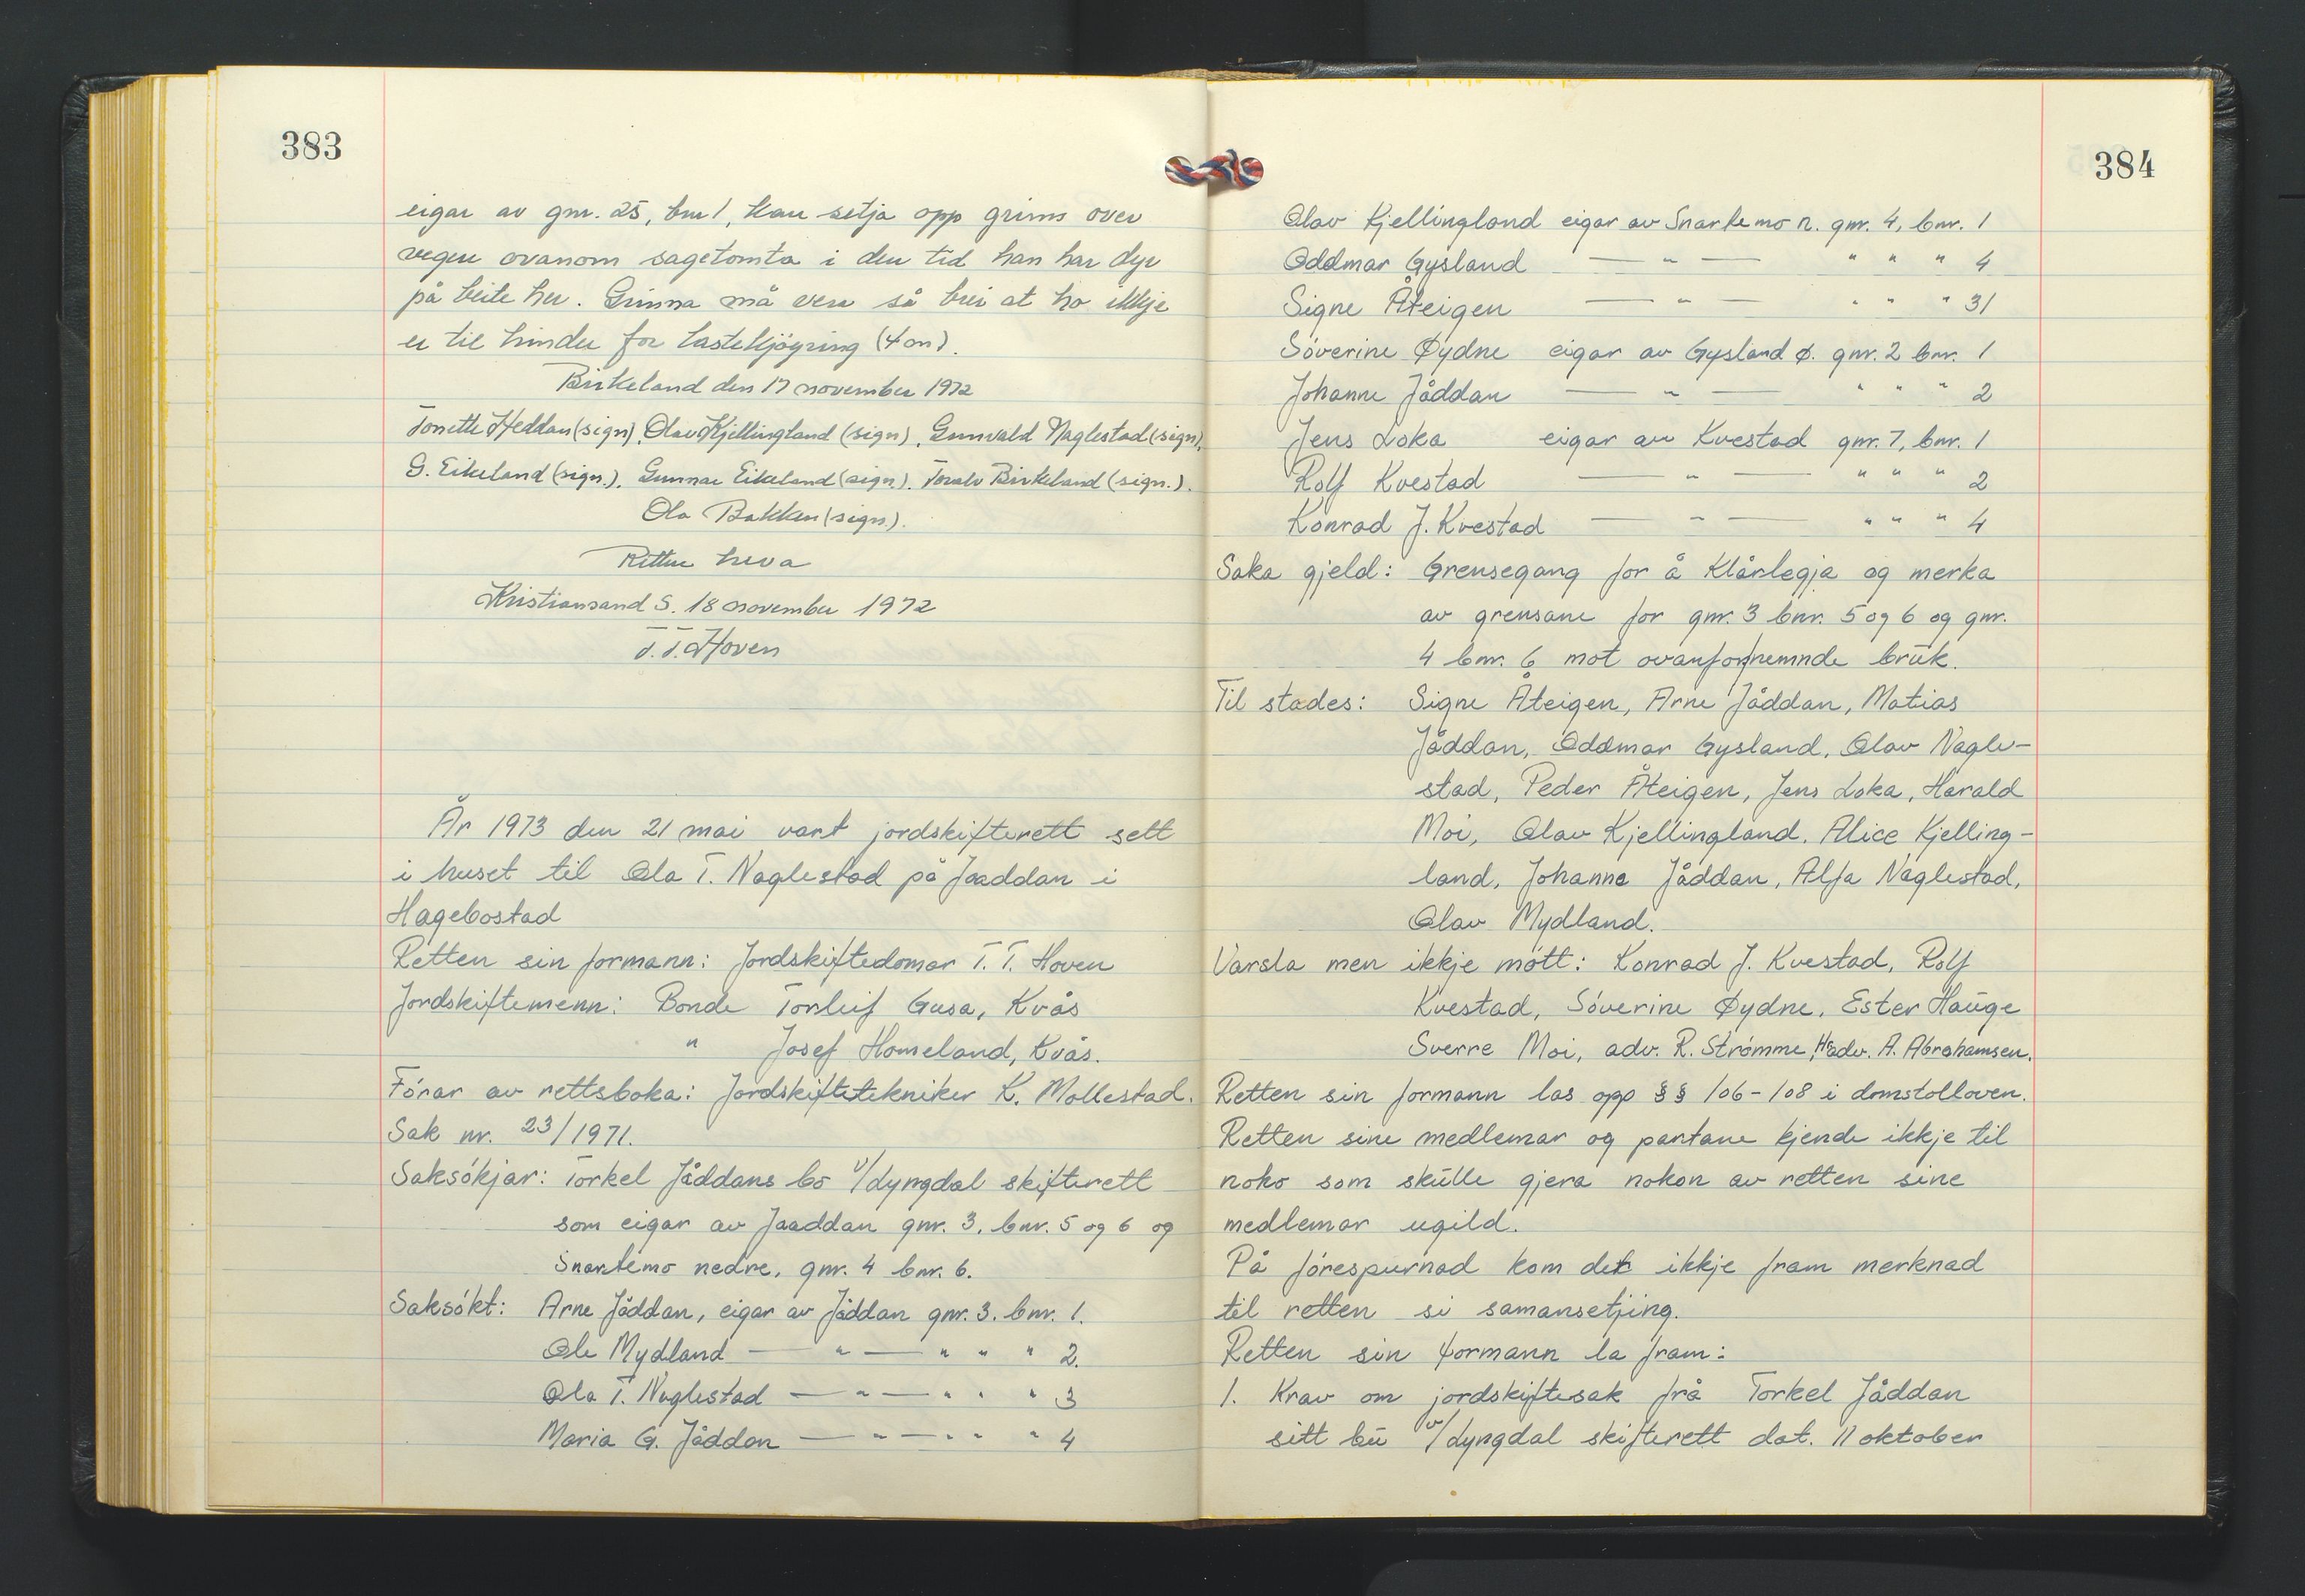 383
eigar av gnr. 25, bnr 1, kan setja opp grinn over
vegen ovanom sagetomta i den tid han har dyr
på beite her. Grinna må vera så brei at ho ikkje
er til hinder for lastekjöyring (4 m).
Birkeland den 17 november 1972
Tonette Heddan (sign), Olav Kjellingland (sign), Gunvald Naglestad (sign),
G. Eikeland (sign.). Gunnar Eikeland (sign.). Toralv Birkeland (sign.).
Ola Bakken (sign.).
Retten heva
Kristiansand S. 18 november 1972
T. T. Hoven
År 1973 den 21 mai vart jordskifterett sett
i huset til Ola T. Naglestad på Jaaddan i
Hægebostad
Retten sin formann: Jordskiftedomar T. T. Hoven
Jordskiftemenn: Bonde Torleif Gusa, Kvås
" Josef Homeland, Kvås.
Förar av rettsboka: Jordskiftetekniker K. Mollestad.
Sak nr. 23/1971.
Saksökjar: Torkel Jåddans bo v/Lyngdal skifterett
som eigar av Jaaddan gnr. 3, bnr. 5 og 6 og
Snartemo nedre, gnr. 4 bnr. 6.
Saksökt: Arne Jåddan, eigar av Jåddan gnr. 3. bnr. 1.
Ole Mydland — " — " " " 2.
Ola T. Naglestad — " — " " " 3
Maria G. Jåddan — " — " " " 4
384
Olav Kjellingland eigar av Snartemo n. gnr. 4, bnr. 1
Oddmar Gysland — " — " " " 4
Signe Åteigen — " — " " " 31
Söverine Øydne eigar av Gysland ø. gnr. 2 bnr. 1
Johanne Jåddan — " — " " " 2
Jens Loka eigar av Kvestad gnr. 7, bnr. 1
Rolf Kvestad — " — " " " 2
Konrad J. Kvestad — " — " " " 4
Saka gjeld: Grensegang for å klårlegja og merka
av grensane for gnr. 3 bnr. 5 og 6 og gnr.
4 bnr. 6 mot ovanfornemnde bruk.
Til stades: Signe Åteigen, Arne Jåddan, Matias
Jåddan, Oddmar Gysland, Olav Nagle-
stad, Peder Åteigen, Jens Loka, Harald
Moi, Olav Kjellingland, Alice Kjelling-
land, Johanna Jåddan, Alfa Naglestad,
Olav Mydland.
Varsla men ikkje mött: Konrad J. Kvestad, Rolf
Kvestad, Söverine Øydne, Ester Hauge
Sverre Moi, adv. R. Strömme, H.r.adv. A. Abrahamsen.
Retten sin formann las opp §§ 106-108 i domstolloven.
Retten sine medlemar og partane kjende ikkje til
noko som skulle gjera nokon av retten sine
medlemar ugild.
På förespurnad kom det ikkje fram merknad
til retten si samansetjing.
Retten sin formann la fram:
1. Krav om jordskiftesak frå Torkel Jåddan
sitt bu v/Lyngdal skifterett dat. 11 oktober